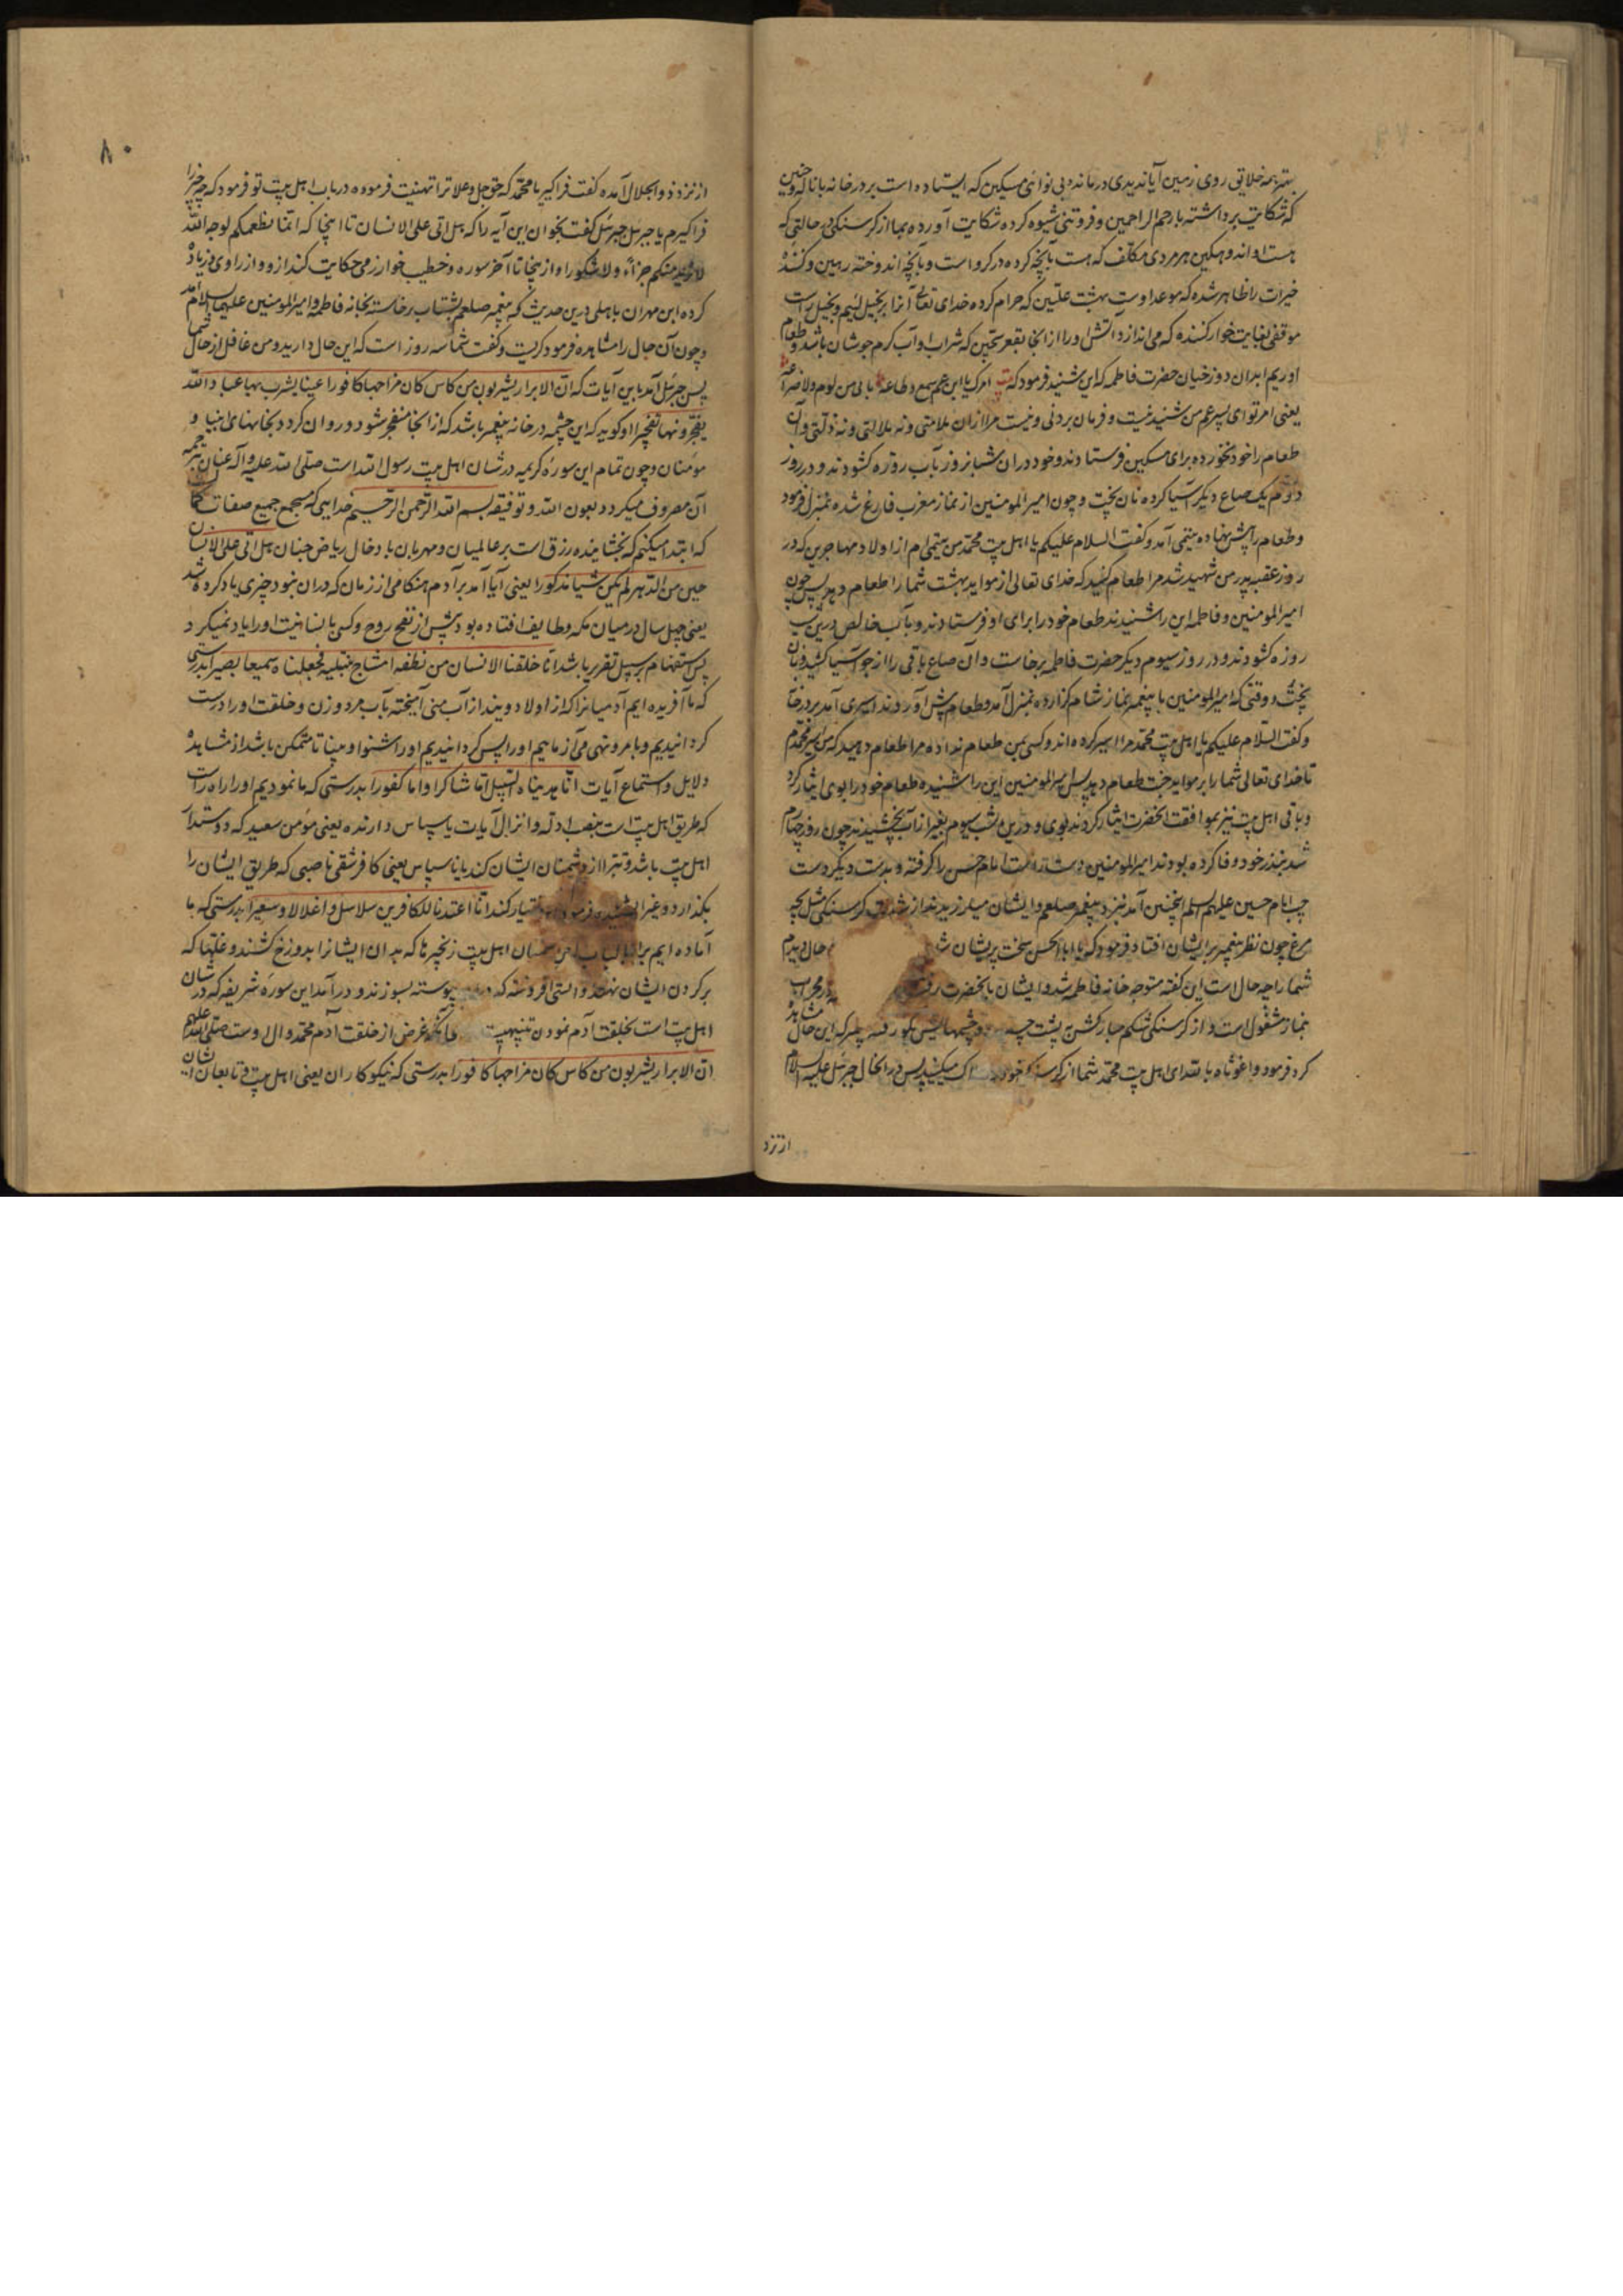 بهترین همه خلایق روی زمین آیا ندیدی درمانده بی نوائی مسکین که ایستاده است بر در خانه با ناله و حنین
که شکایت برداشته بارحم الراحمین و فروتنی شیوه کرده شکایت آورده بما از کرسنکی در حالتی که
هست اوانه و همکین هر مردی مکلف که هست بآنچه کرده در کرو است و بآنچه اندوخته رهین و کننده
خیرات را ظاهر شده که موعد اوست بهشت علیین که حرام کرده خدای تعالی آنرا بر بخیل لئیم و بخیل راست
موقفی بغایت خوار کننده که می اندازد آتش اورا از انجا بقعر سجین که شراب او آب کرم جوشان باشد و طعام
او ریم ابدان دوزخیان حضرت فاطمه که این شنید فرمود که امرک یا ابن عم سمع و طاعه ما بی من لوم ولا ضراعه
یعنی امر تو ای پسر عم من شنیدنیست و فرمان بردنی و نیست مرا از ان ملامتی و نه ملالتی و نه ذلتی و آن
طعام را خود نخورده برای مسکین فرستادند و خود دران شبانروز بآب روزه کشودند و در روز
دوم یک صاع دیکر آسیا کرده نان پخت و چون امیر المومنین از نماز مغرب فارغ شده بمنزل فرمود
و طعام را پیش نهاده یتیمی آمد و کفت السلام علیکم یا اهل بیت محمد من یتیمی ام از اولاد مهاجرین که در
روز عقبه پدر من شهید شد مرا طعام کنید که خدای تعالی از مواید بهشت شما را طعام دهد پس چون
امیر المومنین و فاطمه این را شنیدند طعام خود را برای او فرستادند و بآب خالص درین شب
روزه کشودند و در روز سیوم دیکر حضرت فاطمه برخاست و آن صاع باقی را از جو آسیا کشید و نان
پخت و وقتی که امیر المومنین با پیغمبر نماز شام کزارده بمنزل آمد و طعام پیش آوردند اسیری آمد بر در خانه
و کفت السلام علیکم یا اهل بیت محمد مرا اسیر کرده اند و کسی بمن طعام نداده مرا طعام دهید که من اسیر محمدم
تا خدای تعالی شما را بر مواید جنت طعام دهد پس امیر المومنین این را شنیده طعام خود را بوی ایثار کرد
و باقی اهل بیت نیز بموافقت آنحضرت ایثار کردند بوی و درین شب سیوم بغیر از آب نچشیدند چون روز چهارم
شد بنذر خود وفا کرده بودند امیر المومنین بدست راست امام حسن را کرفته و بدست دیکر دست
چپ امام حسین علیهم السلام اینچنین آمد نزد پیغمبر صلعم و ایشان میلرزیدند از شدت کرسنکی مثل بچه
مرغ چون نظر پیغمبر بر ایشان افتاد فرمود که یا ابا الحسن سخت پریشان حال دیدم
شما را چه حال است این کفته متوجه خانه فاطمه شد و ایشان با آنحضرت در محراب
بنماز مشغول است و از کرسنکی شکم مبارکش به پشت و چشمهایش بکو رفته پیغمبر که این حال مشاهده
کرد فرمود واغوثاه بالله ای اهل بیت محمد شما از کرسنکی میکنید پس در انحال جبرئیل علیه السلام
از نزد
۸۰
از نزد ذو الجلال آمده کفت فرا کیر یا محمد که حق جل و علا ترا تهنیت فرموده در باب اهل بیت تو فرمود که چه چیز را
فرا کیرم یا جبرئیل جبرئیل کفت بخوان این آیه را که هل اتی علی الانسان تا اینجا که انما نطعمکم لوجه الله
لا نرید منکم جزاء ولا شکورا و از نیجا تا آخر سوره و خطیب خوارزمی حکایت کند ازو و از راوی و زیاده
کرده ابن مهران باهلی درین حدیث که پیغمبر صلعم بشتاب برخاسته بخانه فاطمه و امیر المومنین علیهما السلام آمد
و چون آن حال را مشاهده فرمود کریست و کفت شما سه روز است که این حال دارید و من غافل از حال شما
پس جبرئیل آمد باین آیات که ان الابرار یشربون من کاس کان مزاجها کافورا عینا یشرب بها عباد الله
یفجرونها تفجیرا و کوید که این چشمه در خانه پیغمبر باشد که از انجا منفجر شود و روان کردد بخانهای انبیا و
مومنان و چون تمام این سوره کریمه در شان اهل بیت رسول الله است صلی الله علیه و آله عنان ترجمه
آن مصروف میکردد بعون الله و توفیقه بسم الله الرحمن الرحیم خدایی که مستجمع جمیع صفات کمال
که ابتدا میکنم که بخشاینده رزق است بر عالمیان و مهربان بادخال ریاض جنان هل اتی علی الانسان
حین من الدهر لم یکن شیئا مذکورا یعنی آیا آمد بر آدم هنکامی از زمان که دران نبود چیزی یاد کرده شد
یعنی چهل سال در میان مکه و طایف افتاده بود پیش از نفخ روح و کسی بانسانیت اورا یاد نمیکرد
پس استفهام بر سبیل تقریر باشد انا خلقنا الانسان من نطفه امشاج نبتلیه فجعلناه سمیعا بصیرا بدرستی
که ما آفریده ایم آدمیانرا که از اولاد ویند از آب منی آمیخته بآب مرد و زن و خلقت اورا درست
کردانیدیم و بامر و نهی می آزماییم اورا پس کردانیدیم اورا شنوا و بینا تا متمکن باشد از مشاهده
دلایل و استماع آیات انا هدیناه السبیل اما شاکرا و اما کفورا بدرستی که ما نمودیم اورا راه راست
که طریق اهل بیت است بنصب ادله و انزال آیات یا سپاس دارنده یعنی مومن سعید که دوستدار
اهل بیت باشد و تبرا از دشمنان ایشان کند یا ناسپاس یعنی کافر شقی ناصبی که طریق ایشان را
بکذارد و غیر اختیار کند انا اعتدنا للکافرین سلاسل و اغلالا و سعیرا بدرستی که ما
آماده ایم برای اهل بیت زنجیرها که بدان ایشانرا بدوزخ کشند و غلها که
بر کردن ایشان نهند و آتشی افروخته که پیوسته بسوزند و در آمد این سوره شریفه که در شان
اهل بیت است بخلقت آدم نمودن تنبیهیست بآنکه غرض از خلقت آدم محمد و آل اوست صلی الله علیهم
ان الابرار یشربون من کاس کان مزاجها کافورا بدرستی که نیکوکاران یعنی اهل بیت و تابعان ایشان